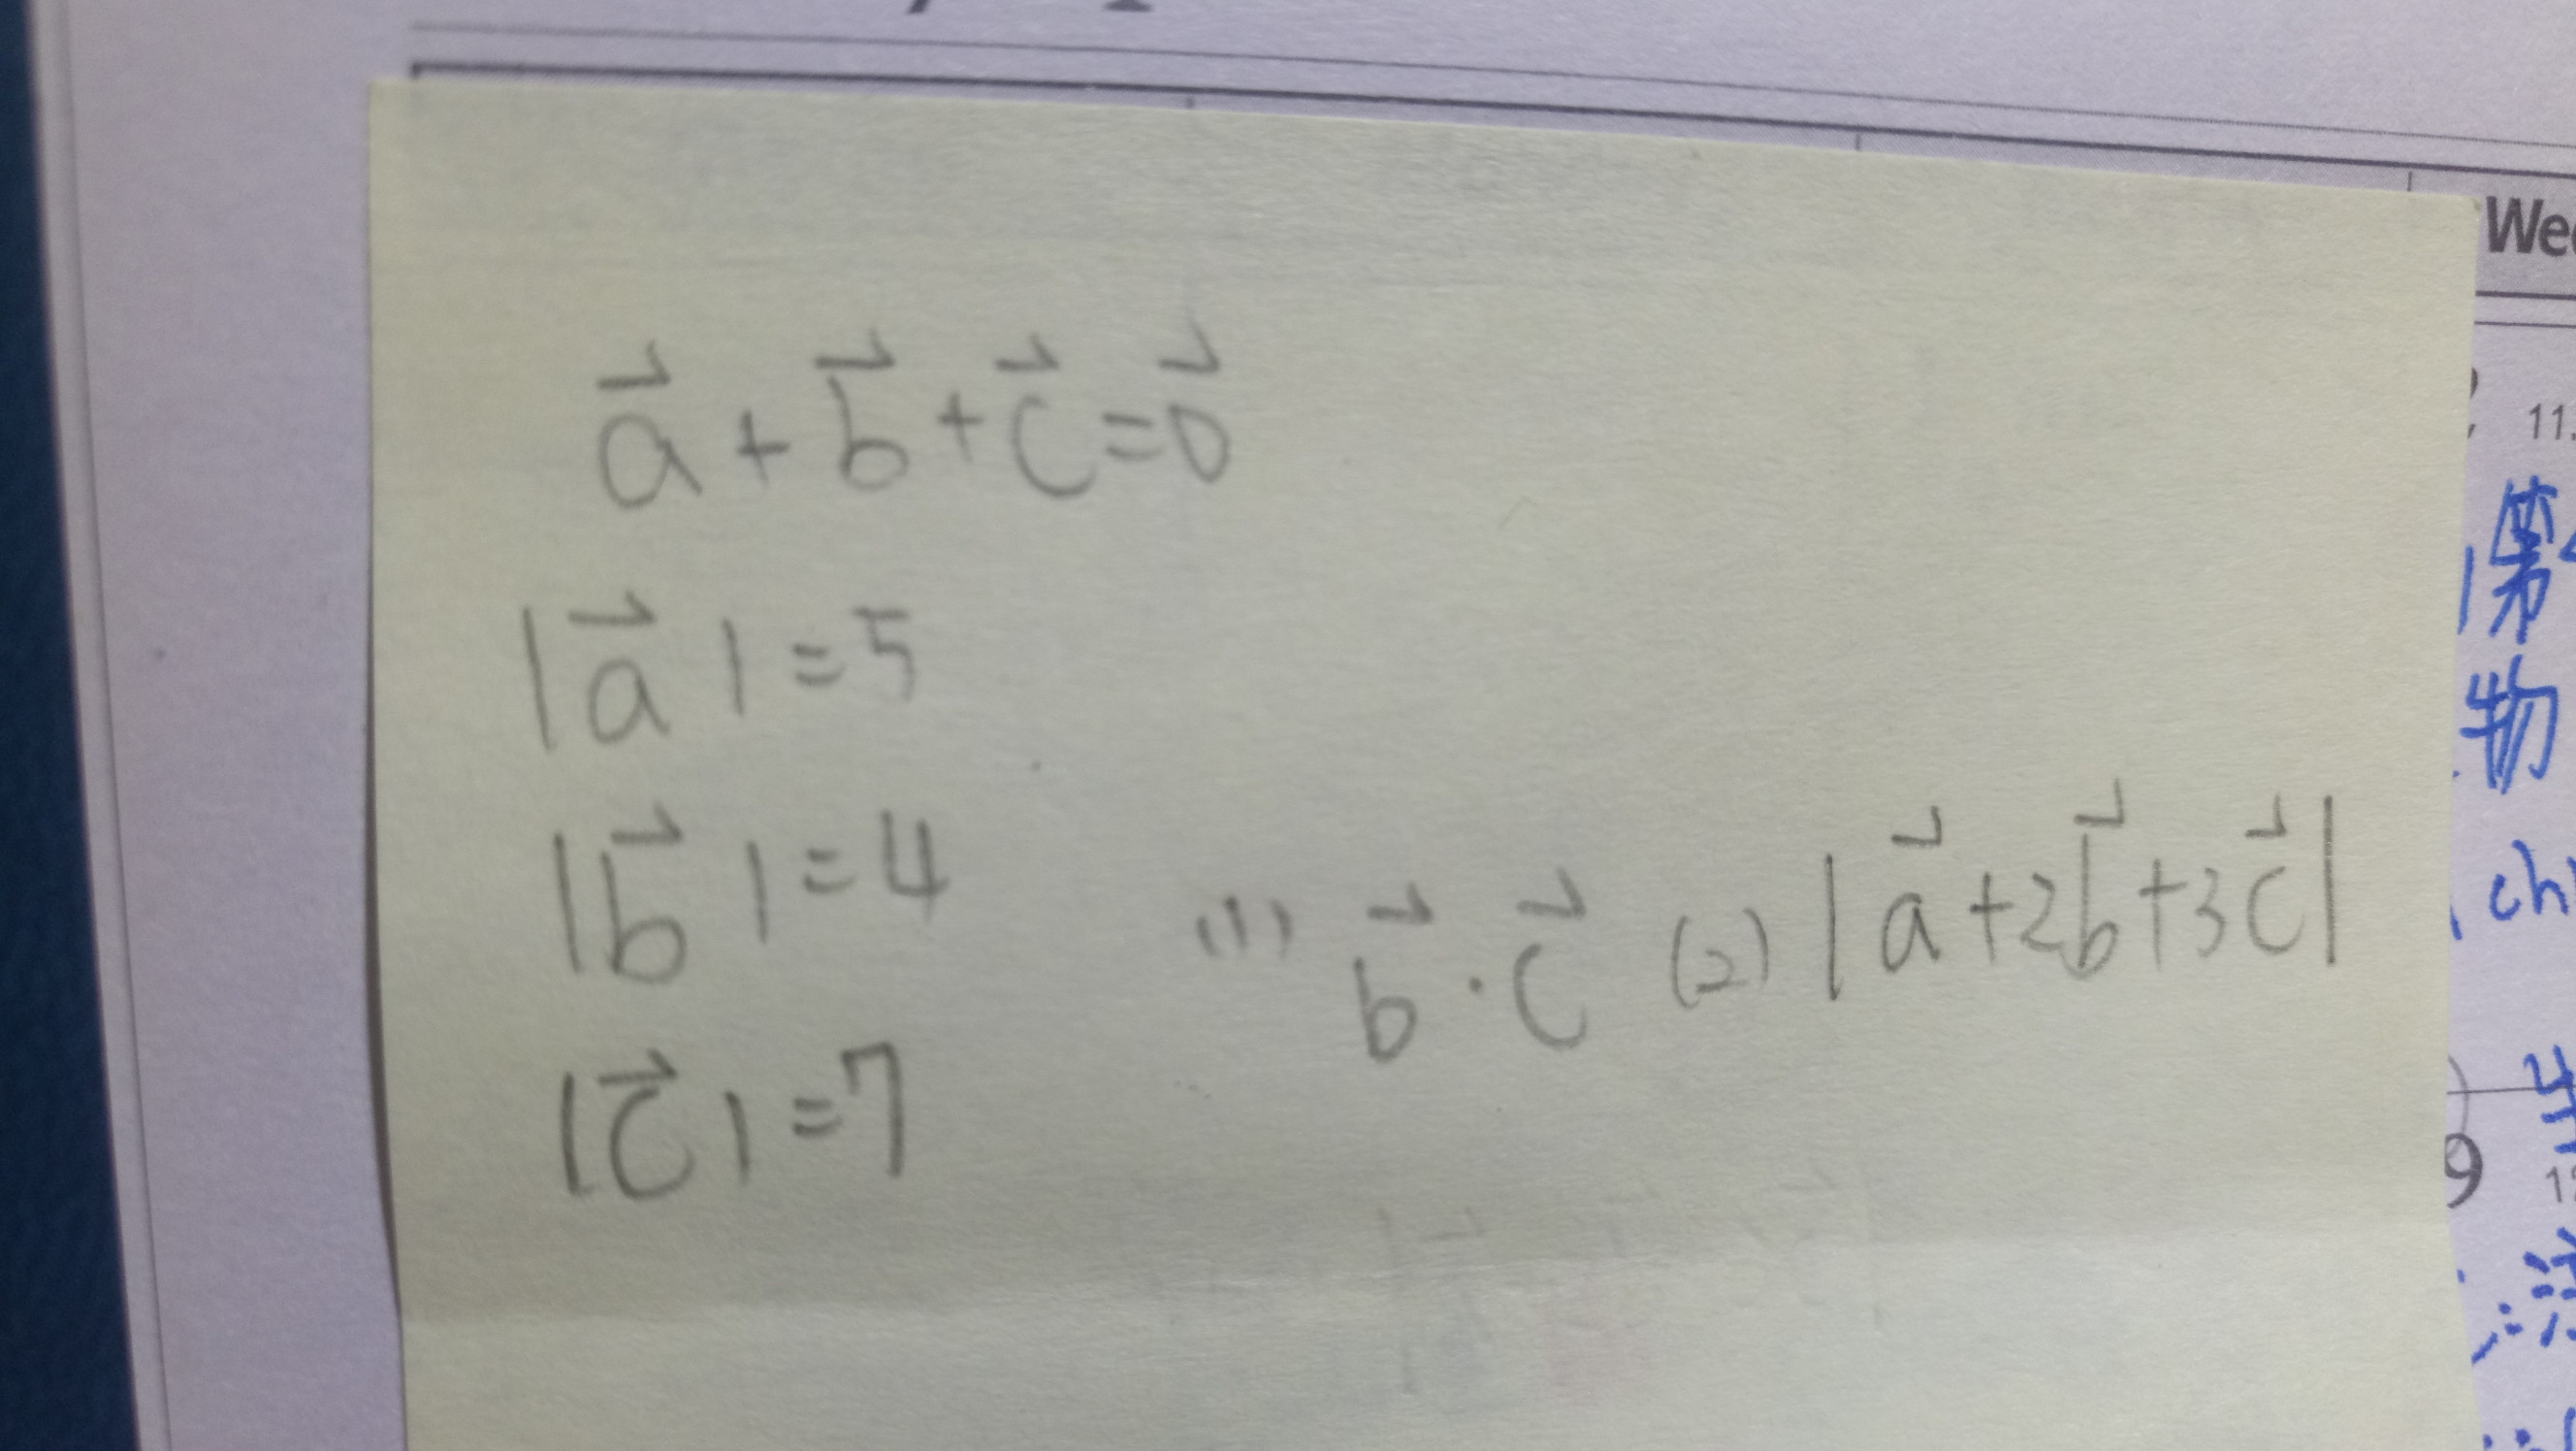 a⃗ + b⃗ + c⃗ = 0⃗
|a⃗| = 5
|b⃗| = 4
|c⃗| = 7
(1) b⃗ · c⃗ (2) |a⃗ + 2b⃗ + 3c⃗|
We
11.
第
物
ch
9